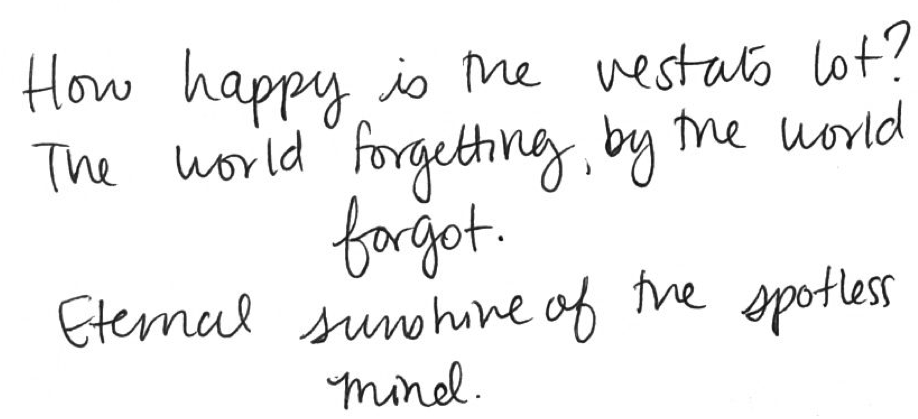 How happy is the vestals lot?
The world forgetting, by the world
forgot.
Eternal sunshine of the spotless
mind.